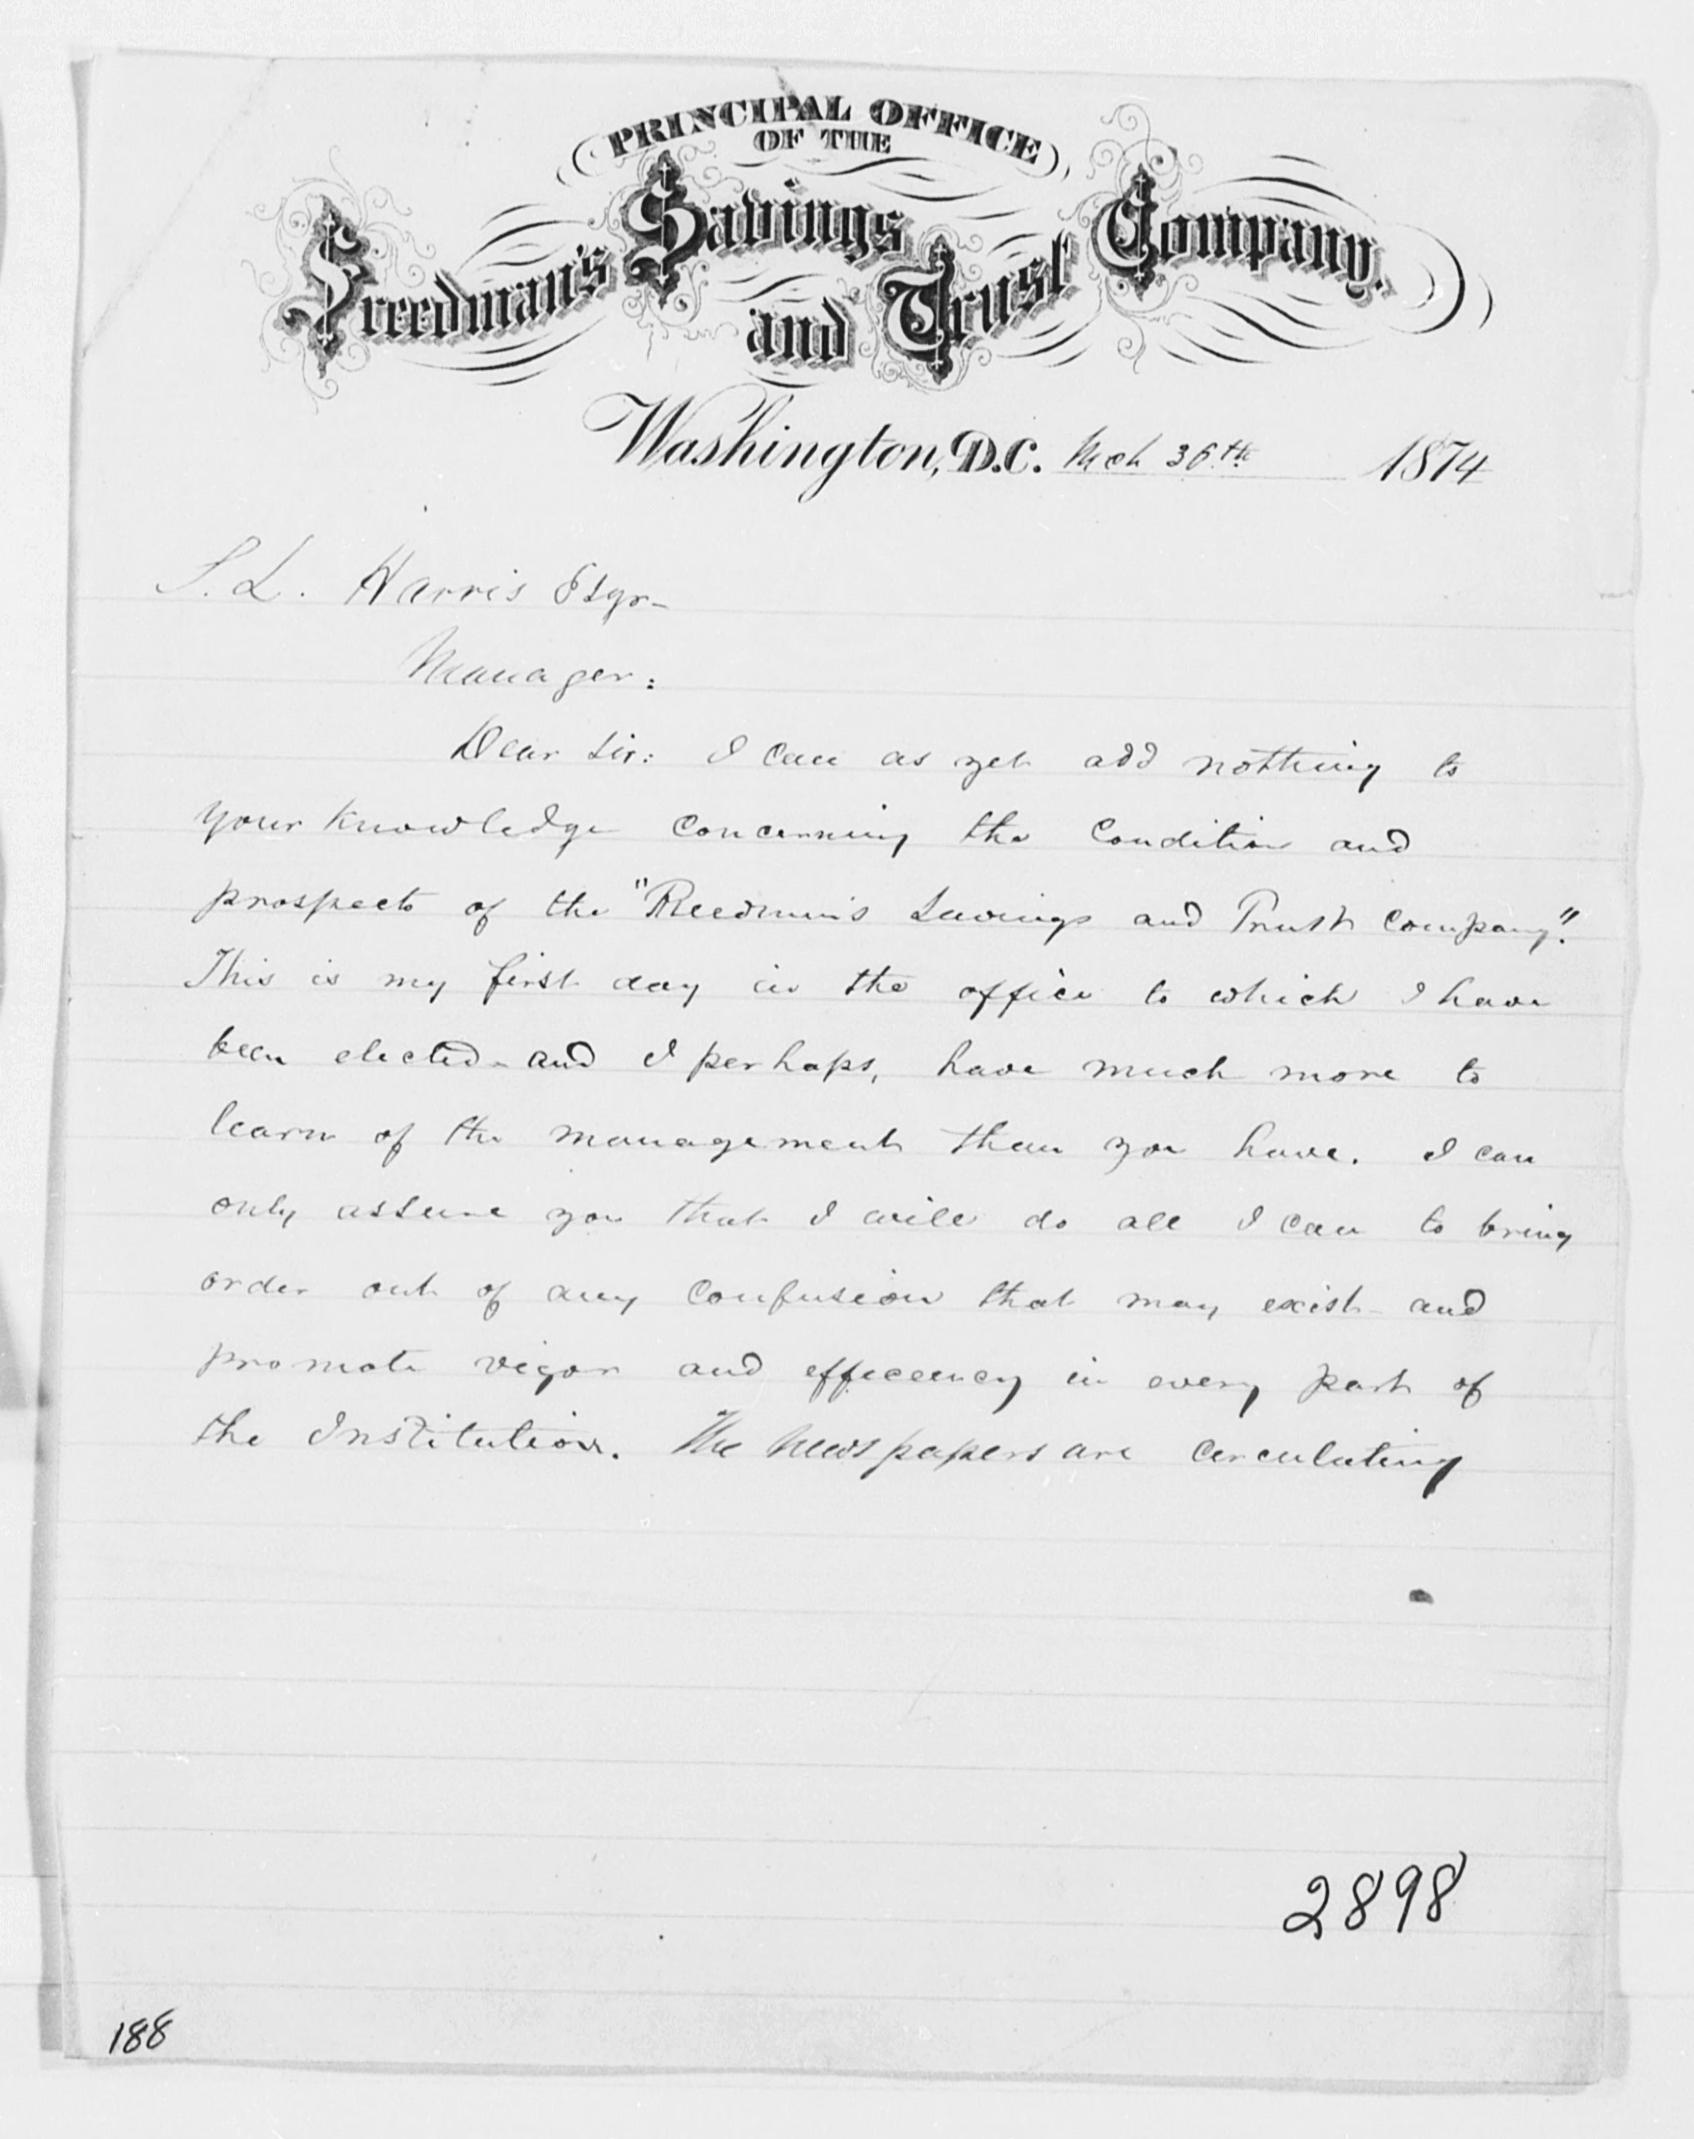 PRINCIPAL OFFICE
OF THE
Freedman's Savings and Trust Company.
Washington, D.C. Mch 30th 1874
S. L. Harris Esqr-
Manager:
Dear Sir: I can as yet add nothing to
your knowledge concerning the Condition and
prospects of the "Freedmen's Savings and Trust Company".
This is my first day in the office to which I have
been elected - and I perhaps, have much more to
learn of the management than you have. I can
only assure you that I will do all I can to bring
order out of any confusion that may exist - and
promote vigor and efficeency in every part of
the Institution. The Newspapers are circulating
2898
188